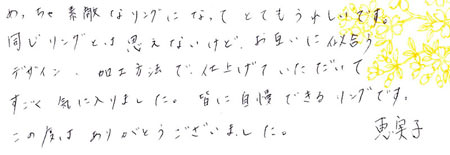 めっちゃ素敵なリングになってとてもうれしいです。
同じリングとは思えないけど、お互いに似合う
デザイン、加工方法で、仕上げていただいて
すごく気に入りました。皆に自慢できるリングです。
この度はありがとうございました。
恵実子